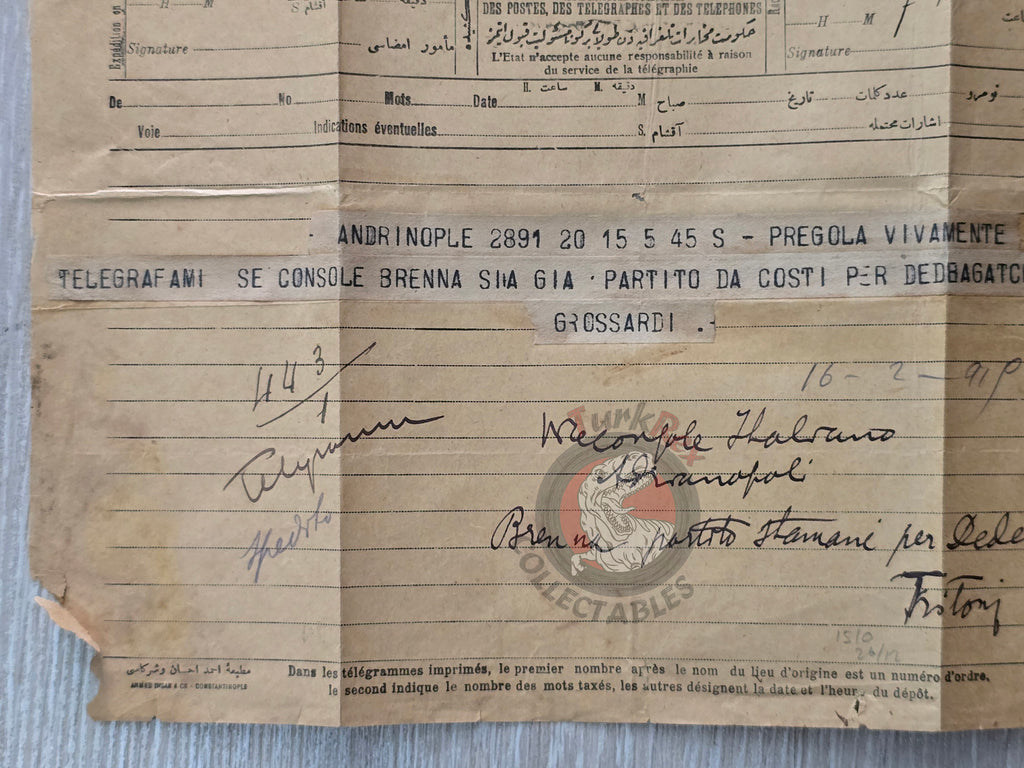 H M دقیقه
Expédition
Signature مأمور امضاسی
DES POSTES, DES TÉLÉGRAPHES ET DES TÉLÉPHONES
L'Etat n'accepte aucune responsabilité à raison
du service de la télégraphie
H M ساعت
Signature
De No Mots Date H. ساعت M. دقیقه M صباح تاریخ عدد كلمات نومرو
Voie Indications éventuelles S. آقشام اشارات محتمله
ANDRINOPLE 2891 20 15 5 45 S - PREGOLA VIVAMENTE
TELEGRAFAMI SE CONSOLE BRENNA SIIA GIA PARTITO DA COSTI PER DEDBAGATCH
GROSSARDI .-
443/1
16-2-919
Telegramma
spedito
Viceconsole Italiano
Adrianopoli
Brenna partito stamane per Dede
TurkRex
COLLECTABLES
1510
26/12
مطبعهٔ احمد احسان وشركاسی
AHMED IHSAN & Cie - CONSTANTINOPLE
Dans les télégrammes imprimés, le premier nombre après le nom du lieu d'origine est un numéro d'ordre,
le second indique le nombre des mots taxés, les autres désignent la date et l'heure du dépôt.